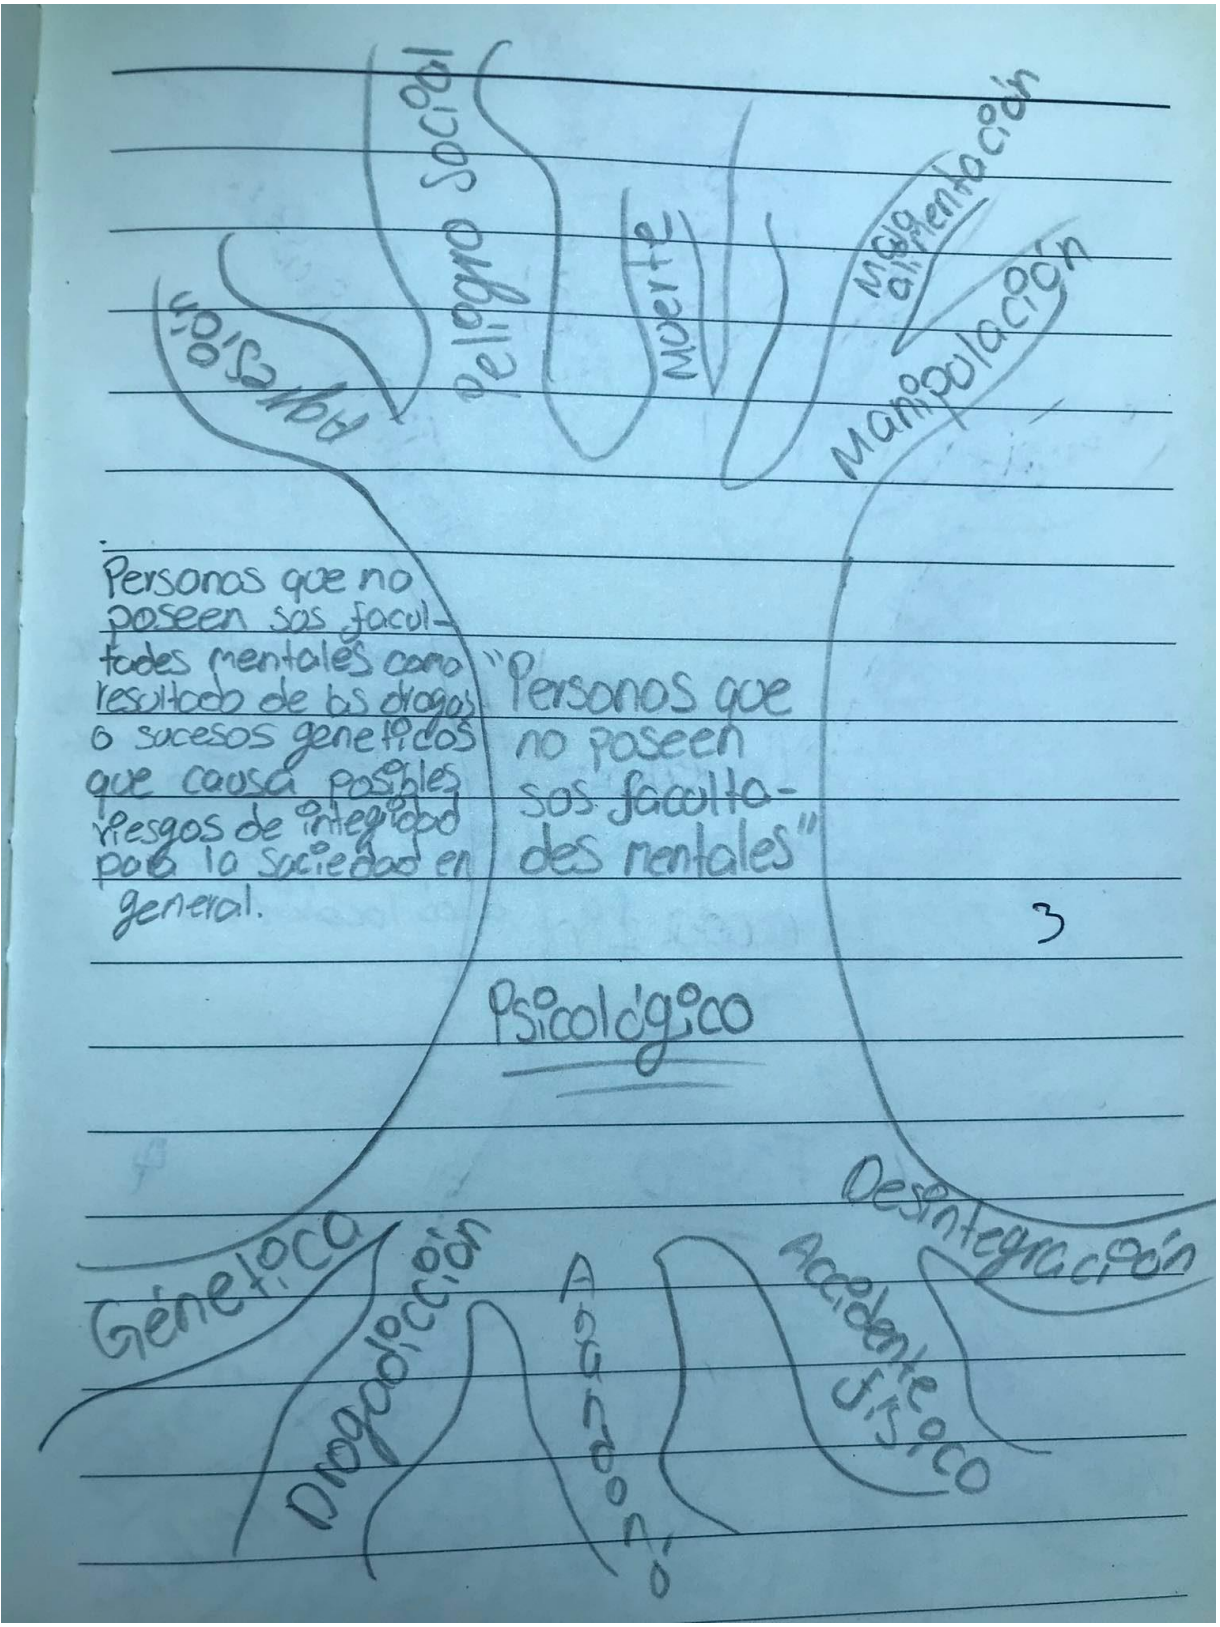 Agresión
Peligro Social
Muerte
Mala
alimentación
Manipulación
Personas que no
poseen sus facul-
tades mentales como
resultado de las drogas
o sucesos geneticos
que causa posibles
riesgos de integridad
para la sociedad en
general.
"Personas que
no poseen
sus faculta-
des mentales"
3
Psicológico
Génetica
Drogadicción
Accidente
físico
Desintegración